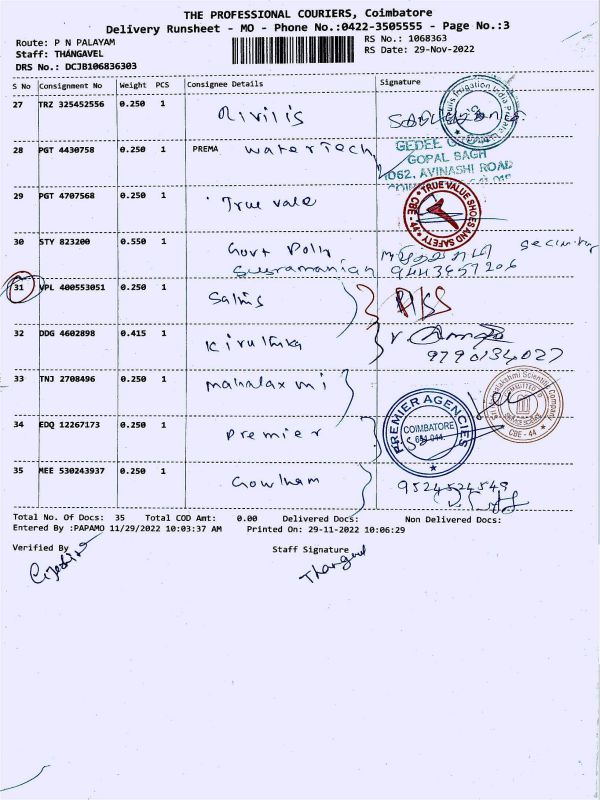 THE PROFESSIONAL COURIERS, Coimbatore
Delivery Runsheet - MO - Phone No.:0422-3505555 - Page No.:3
Route: P N PALAYAM
Staff: THANGAVEL
DRS No.: DCJB106836303
RS No.: 1068363
RS Date: 29-Nov-2022
S No Consignment No Weight PCS Consignee Details Signature
27 TRZ 325452556 0.250 1 Rivilis
28 PGT 4430758 0.250 1 PREMA Watertech
GEDEE
GOPAL BAGH
1062, AVINASHI ROAD
29 PGT 4707568 0.250 1 True vale
TRUE VALUE SHOES AND SAFETY CBE - 44
30 STY 823200 0.550 1 Govt Polly
Subramanian
security
9443657206
31 VPL 400553051 0.250 1 Salmis
32 DDG 4602898 0.415 1 Kiruthika
9790134027
33 TNJ 2708496 0.250 1 Mahalaxmi
34 EDQ 12267173 0.250 1 Premier
PREMIER AGENCIES
COIMBATORE
641 044.
CBE - 44
35 MEE 530243937 0.250 1 Gowtham
9524524549
Total No. Of Docs: 35 Total COD Amt: 0.00 Delivered Docs: Non Delivered Docs:
Entered By :PAPAMO 11/29/2022 10:03:37 AM Printed On: 29-11-2022 10:06:29
Verified By
Staff Signature
Thangavel